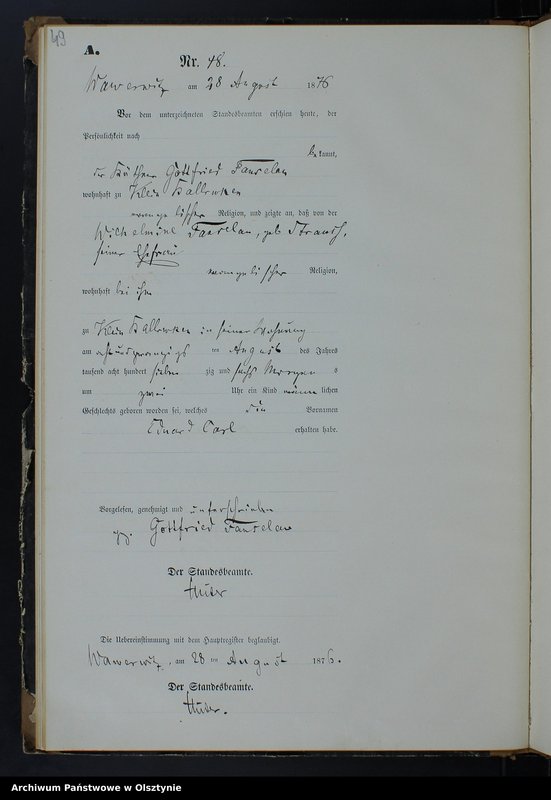 49
A.
Nr. 48.
am 28 August 1876
Vor dem unterzeichneten Standesbeamten erschien heute, der
Persönlichkeit nach
bekannt,
der Käthner Gottfried
wohnhaft zu Klein
evangelischer Religion, und zeigte an, daß von der
Wilhelmine geb
seiner Ehefrau
evangelischer Religion,
wohnhaft bei ihm
zu Klein in seiner Wohnung
am achtundzwanzigs ten August des Jahres
tausend acht hundert sieben zig und sechs Morgen s
um zwei Uhr ein Kind männ lichen
Geschlechts geboren worden sei, welches die Vornamen
Eduard Carl erhalten habe.
Vorgelesen, genehmigt und unterschrieben
gz. Gottfried
Der Standesbeamte.
Die Uebereinstimmung mit dem Hauptregister beglaubigt.
am 28 ten August 1876.
Der Standesbeamte.
Archiwum Państwowe w Olsztynie